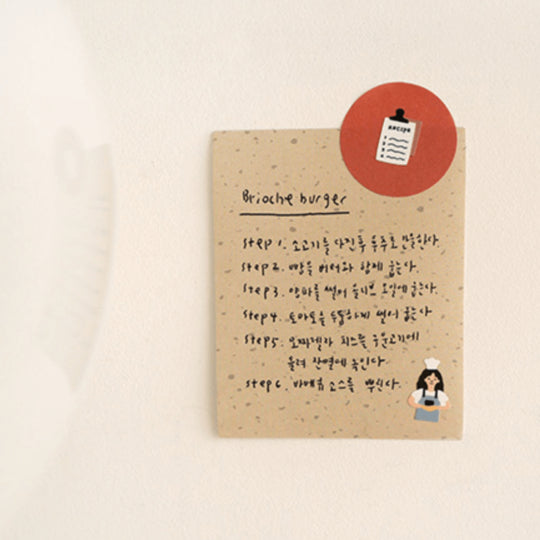 RECIPE
1
2
3
4
Brioche burger
step 1. 소고기를 다진후 뭉주로 만들한다.
step 2. 빵을 버터와 함께 굽는다.
step 3. 양파를 썰어 올리브 오일에 굽는다.
step 4. 토마토를 두툼하게 썰어 굽는다
step 5: 모짜렐라 치즈를 구운고기에
올려 잔열에 녹인다.
step 6. 바베큐 소스를 뿌린다.